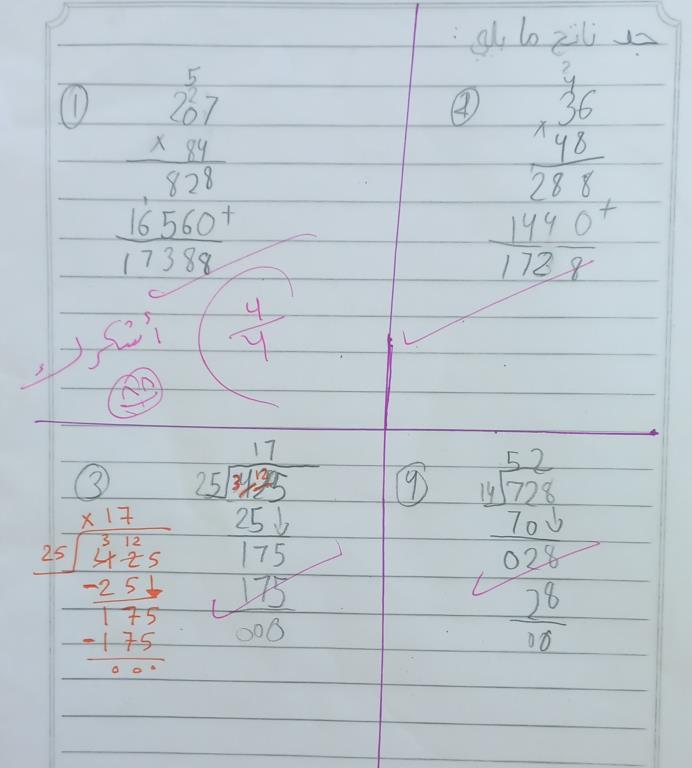 جد ناتج ما يلي :
① 5
2
207
× 84
828
1
16560+
17388
② 2
4
36
× 48
288
1440+
1728
4/4
أشكرك
③ 17
25 425
3 12
25↓
175
175
000
× 17
3 12
25 425
-25↓
175
-175
000
④ 52
14 728
70↓
028
28
00